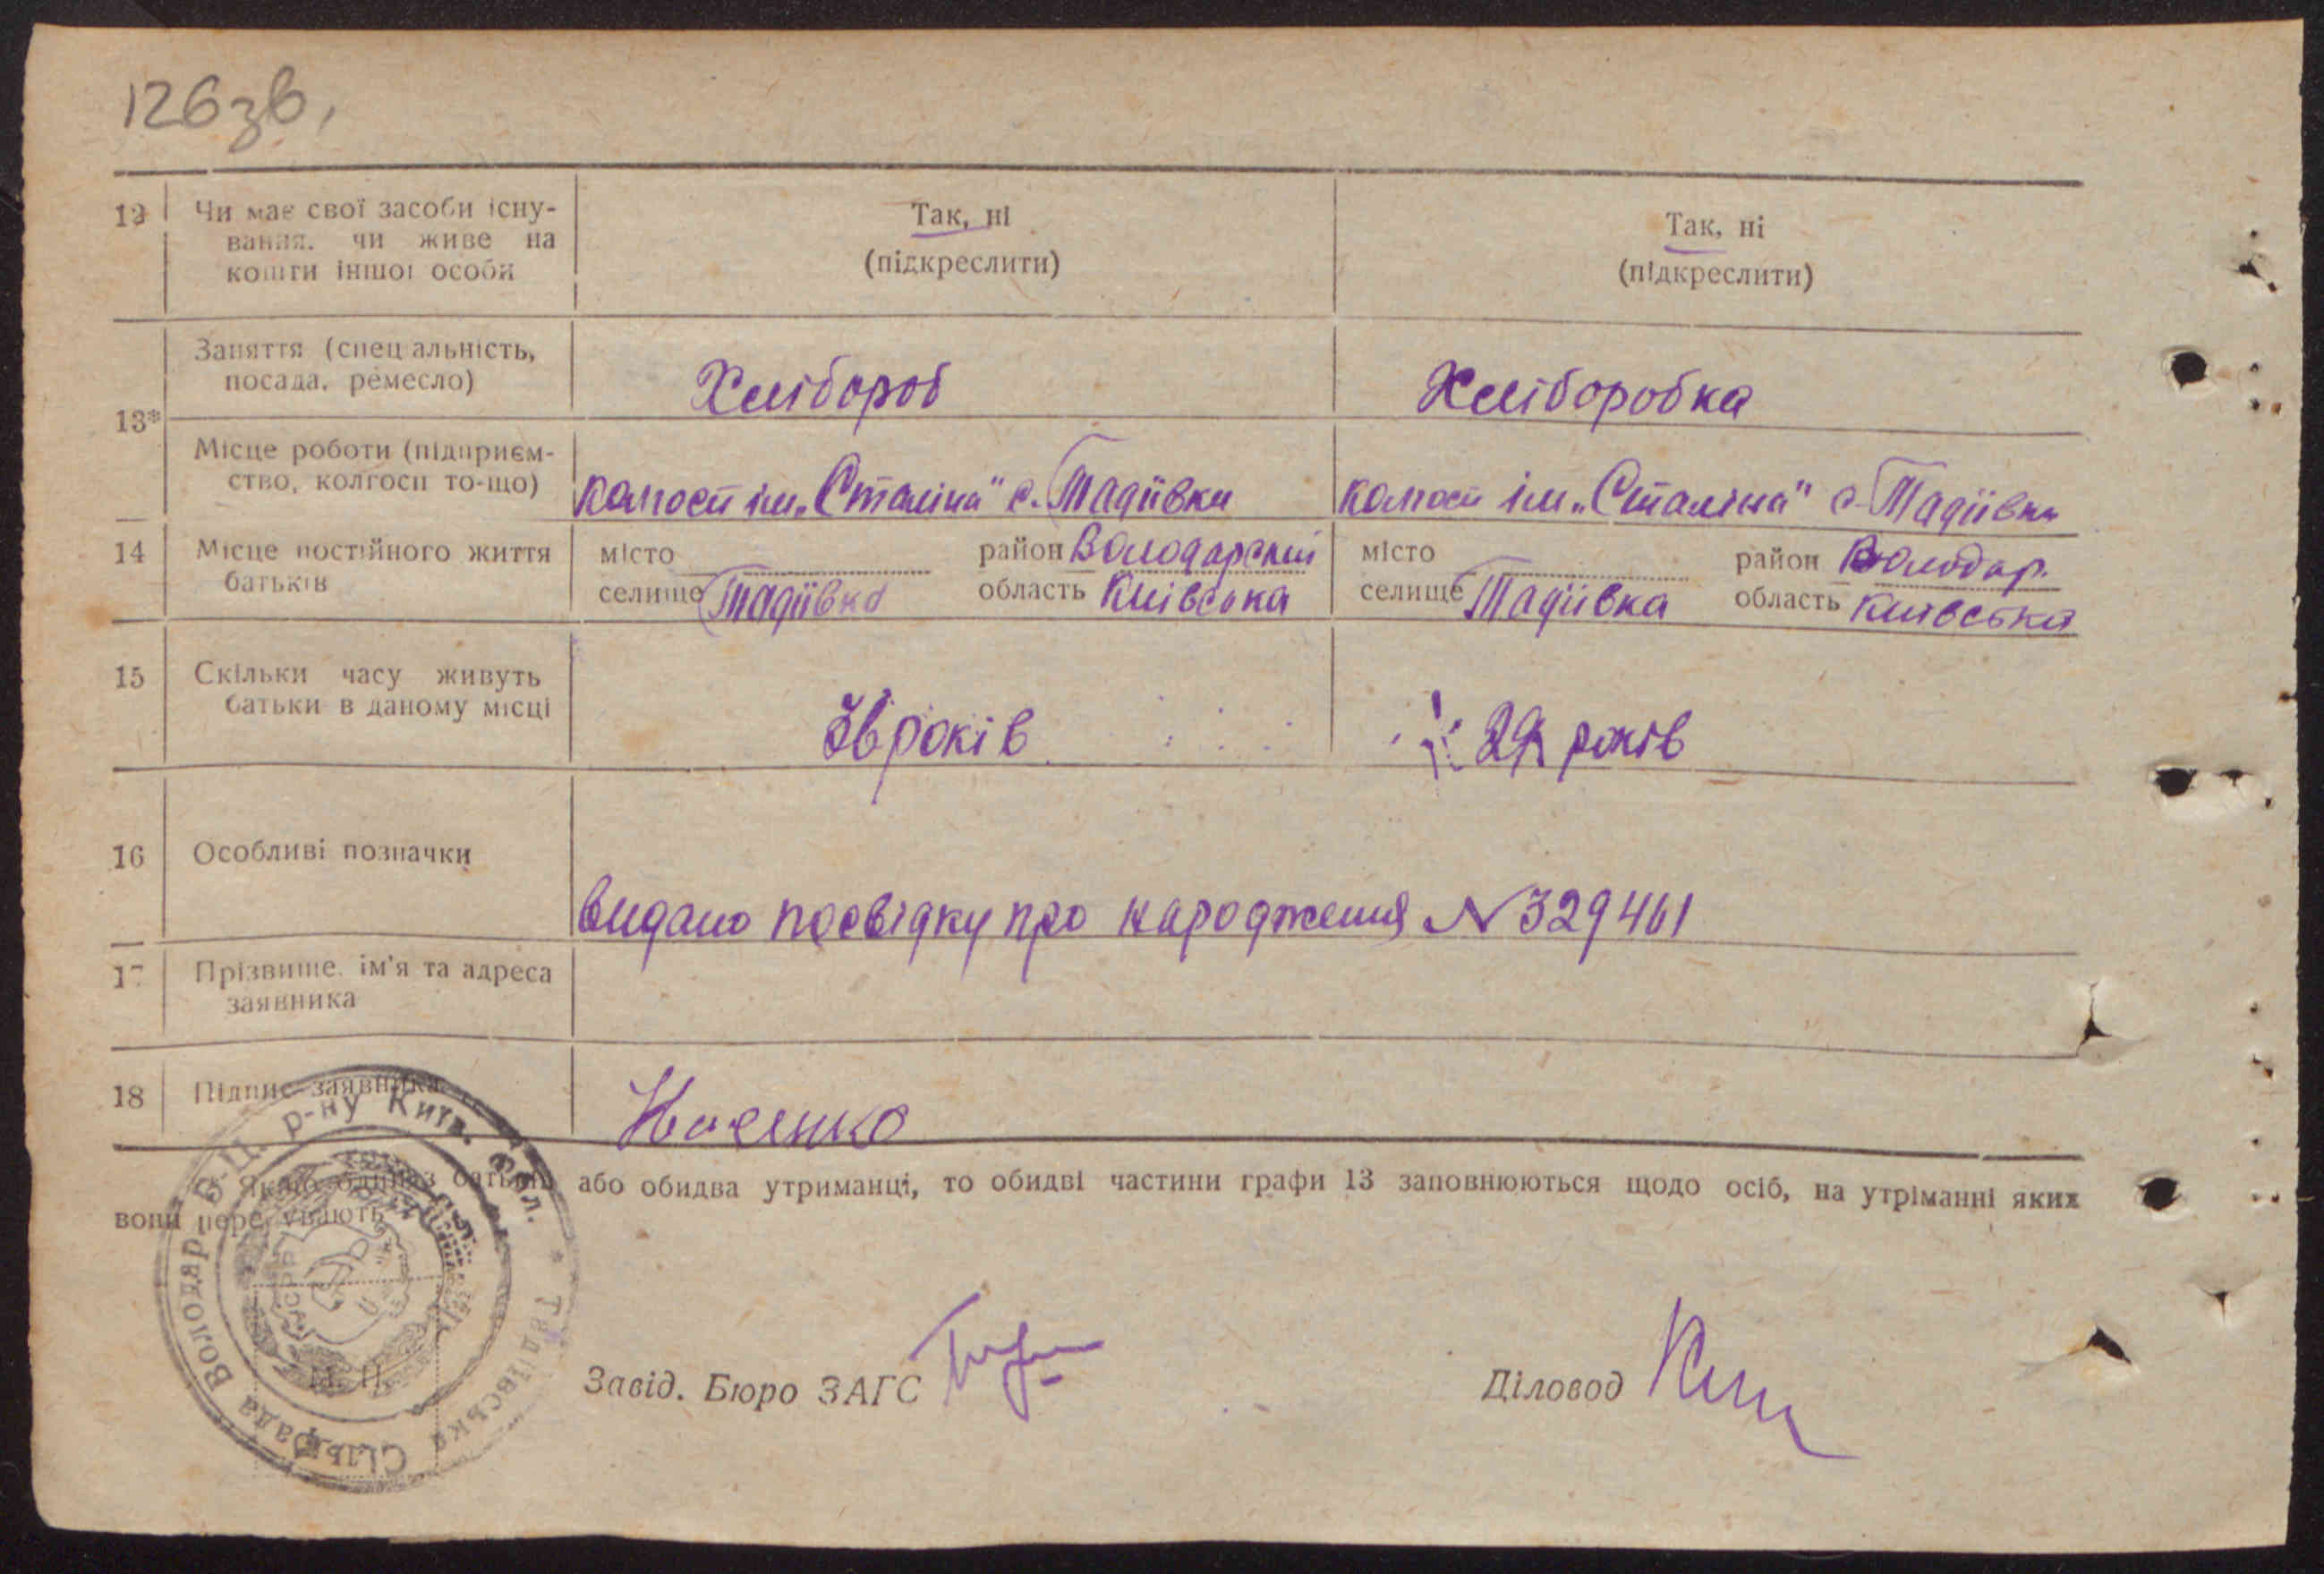 126 зв.
12 Чи має свої засоби існу- Так, ні Так, ні
вання, чи живе на (підкреслити) (підкреслити)
кошти іншої особи
Заняття (спеціальність,
посада, ремесло) Хлібороб Хліборобка
13*
Місце роботи (підприєм-
ство, колгосп то-що) колгосп ім. „Сталіна" с. Тадіївки колгосп ім. „Сталіна" с. Тадіївки
14 Місце постійного життя місто район Володарский місто район Володар.
батьків селище Тадіївка область Київська селище Тадіївка область Київська
15 Скільки часу живуть
батьки в даному місці 36 років 29 років
16 Особливі позначки
видано посвідку про народження N 329461
17 Прізвище, ім'я та адреса
заявника
18 Підпис заявника
* Якщо один з батьків або обидва утриманці, то обидві частини графи 13 заповнюються щодо осіб, на утріманні яких
вони перебувають
Тадіївська Сільрада Володар. Б-Ц. р-ну Київ. обл.
УСРР
М. П.
Завід. Бюро ЗАГС Діловод